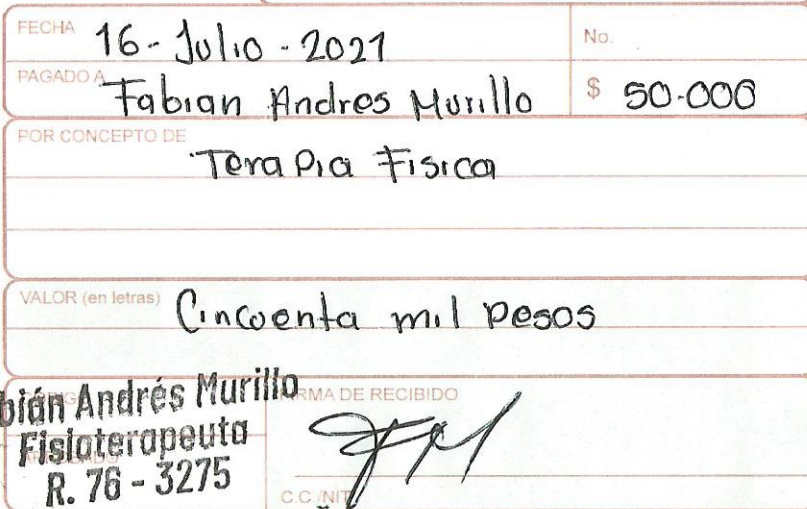 FECHA 16-Julio-2021
No.
PAGADO A Fabian Andres Murillo
$ 50.000
POR CONCEPTO DE
Terapia Fisica
VALOR (en letras) Cincoenta mil pesos
bián Andrés Murillo
Fisioterapeuta
R. 76 - 3275
RMA DE RECIBIDO
C.C./NIT